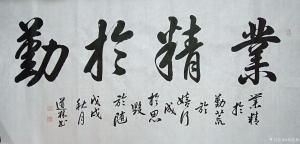 業精於勤
業精
於
勤荒
於
嬉行
成
於思
毀
於随
戊戌
秋月